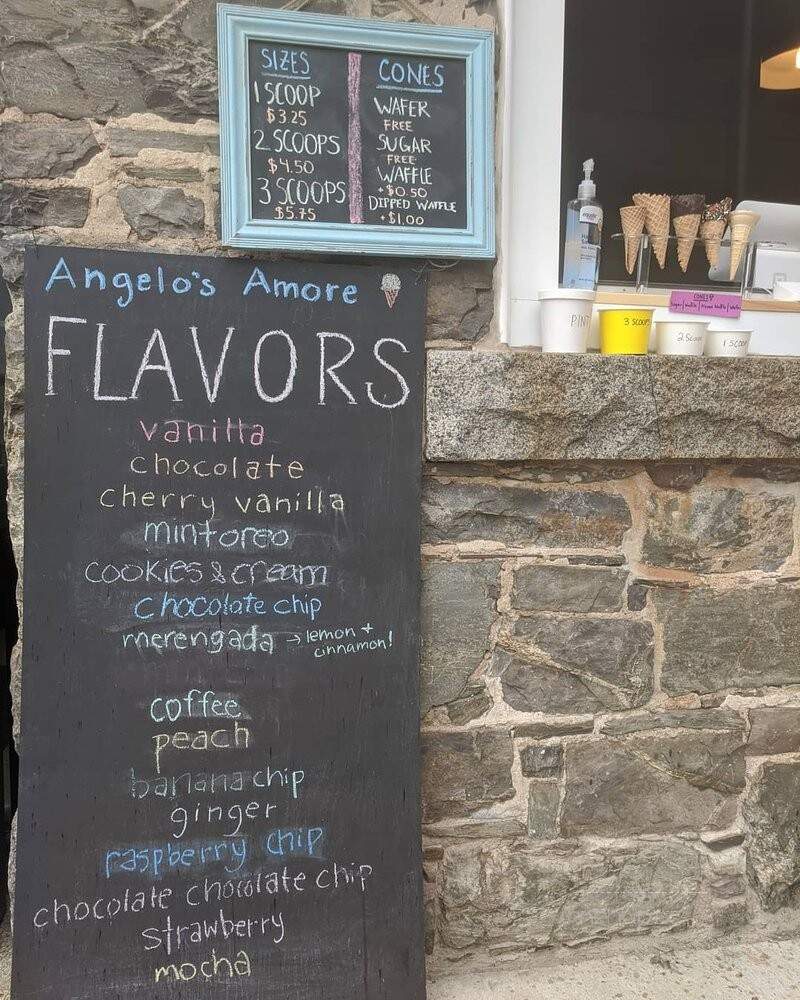 SIZES
1 SCOOP
$3.25
2 SCOOPS
$4.50
3 SCOOPS
$5.75
CONES
WAFER
FREE
SUGAR
FREE
WAFFLE
+$0.50
DIPPED WAFFLE
+$1.00
Angelo's Amore
FLAVORS
vanilla
chocolate
cherry vanilla
mint oreo
cookies & cream
chocolate chip
merengada → lemon +
cinnamon!
coffee
peach
banana chip
ginger
raspberry chip
chocolate chocolate chip
strawberry
mocha
CONES
PINT
3 SCOOPS
2 Scoop
1 SCOOP